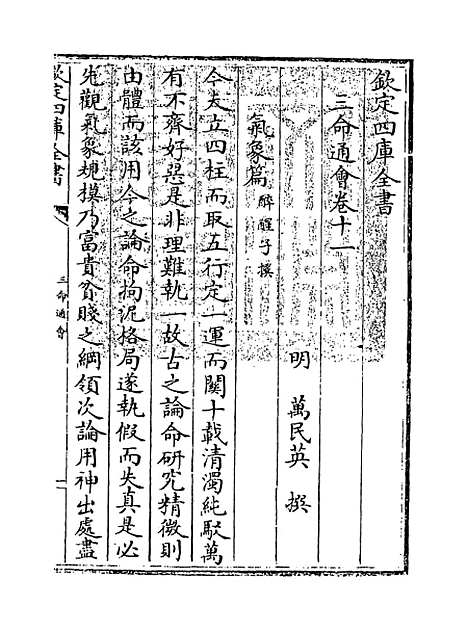 欽定四庫全書
三命通會卷十一
明 萬民英 撰
氣象篇 醉醒子撰
今夫立四柱而取五行定一運而關十載清濁純駁萬
有不齊好惡是非理難執一故古之論命研究精微則
由體而該用今之論命拘泥格局遂執假而失真是必
先觀氣象規模乃富貴貧賤之綱領次論用神出處盡
欽定四庫全書
三命通會
一